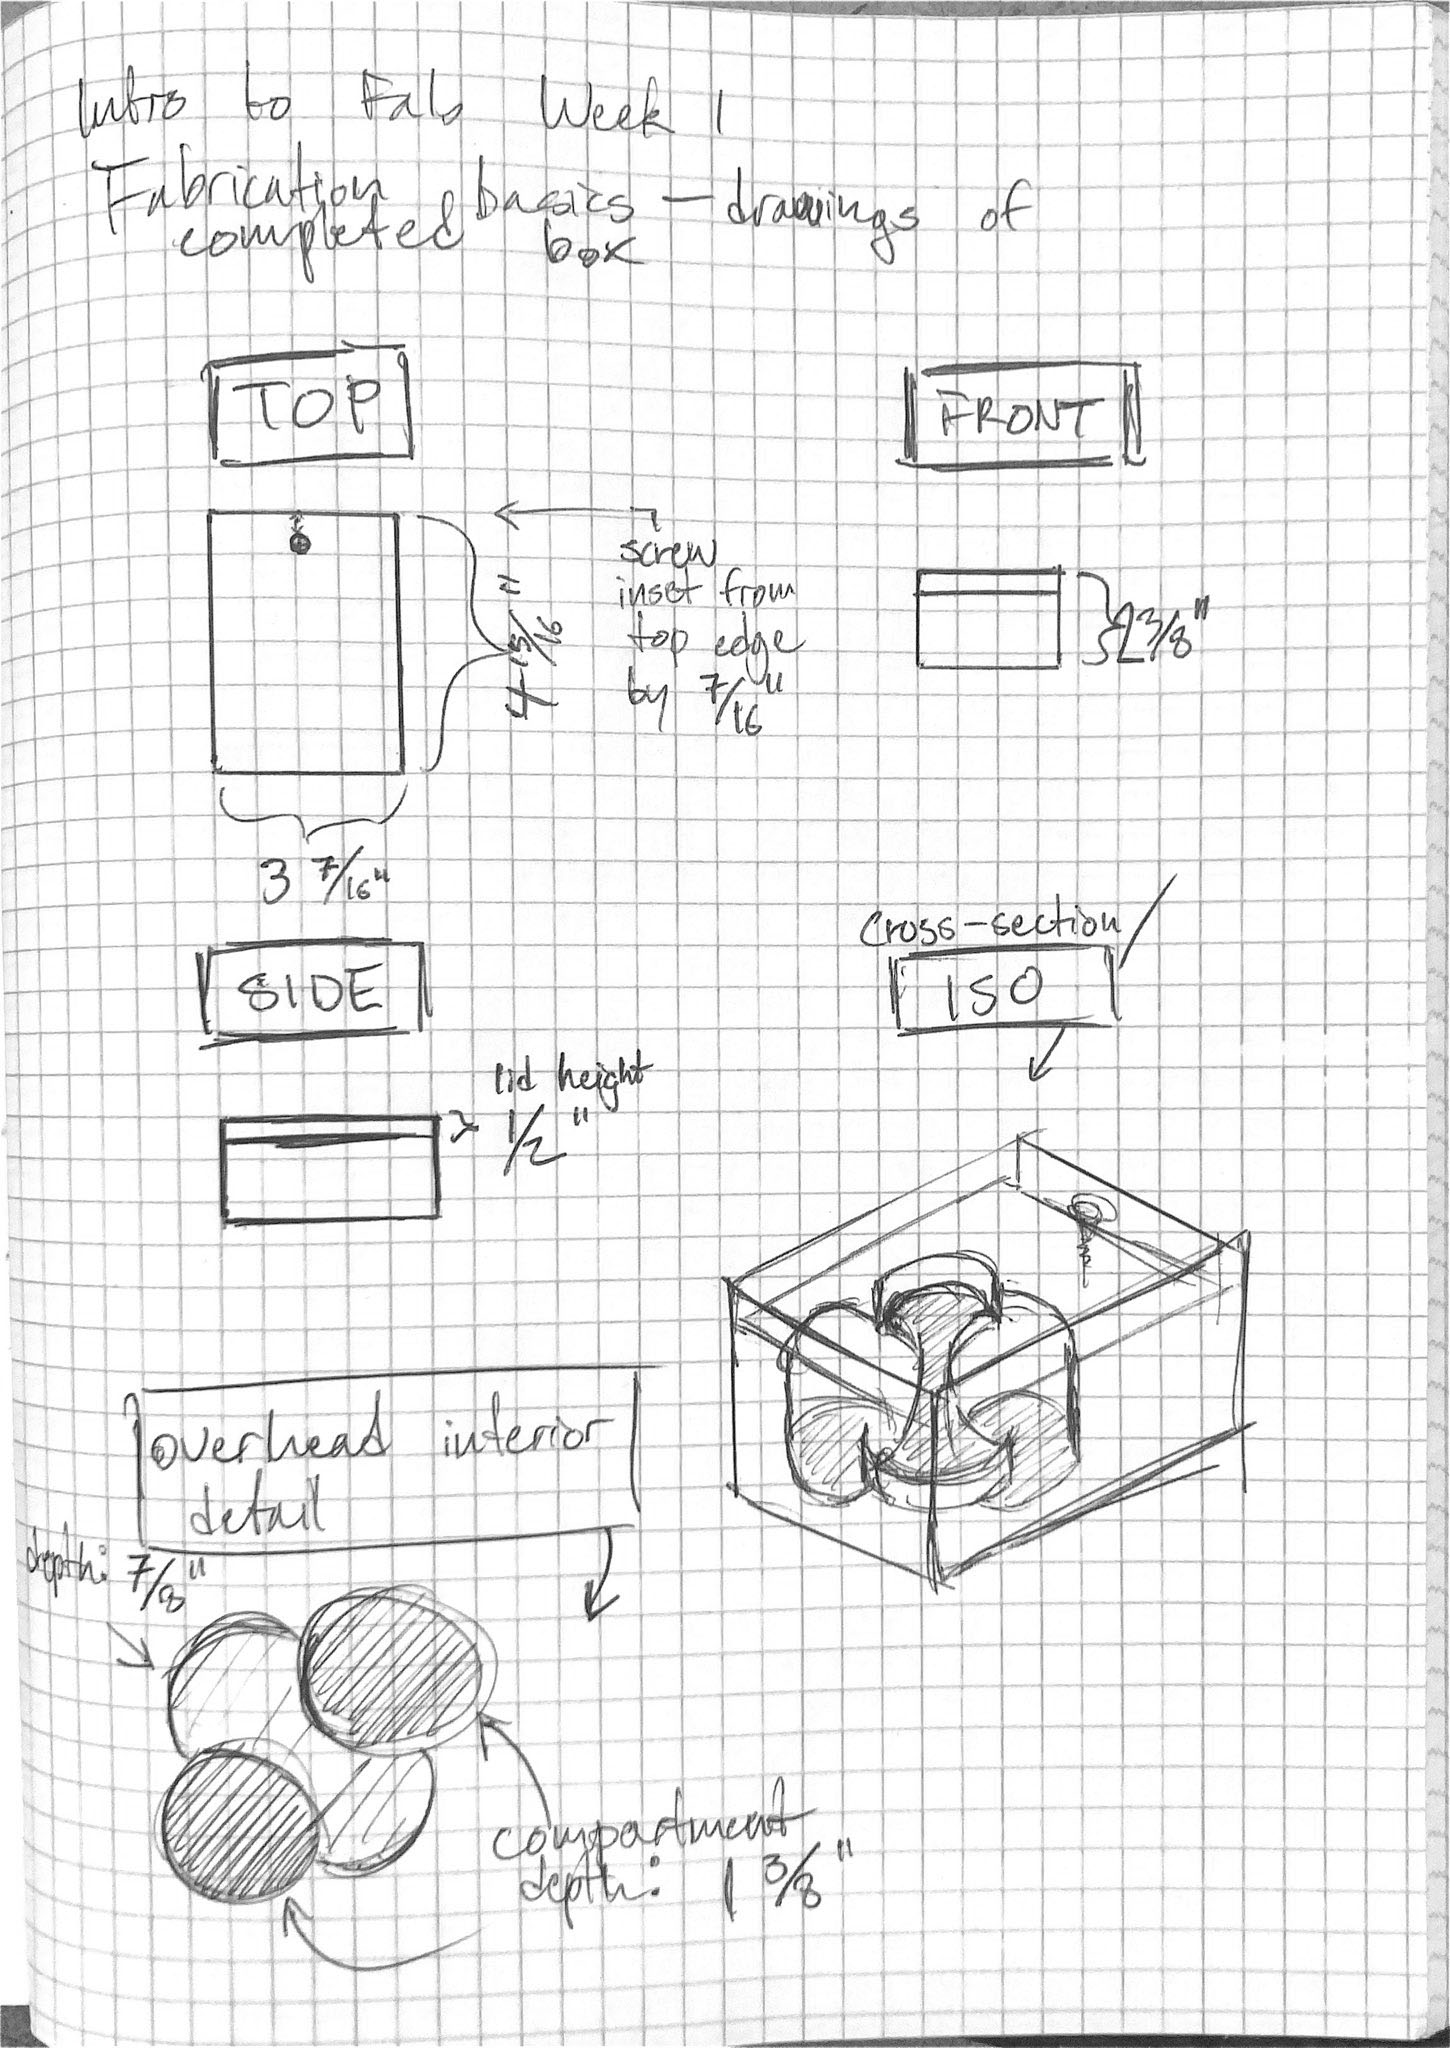 Intro to Fab Week 1
Fabrication basics — drawings of
completed box
TOP
4-15/16"
screw
inset from
top edge
by 7/16"
3 7/16"
FRONT
2 3/8"
SIDE
lid height
1/2"
cross-section/
ISO
overhead interior
detail
depth: 7/8"
compartment
depth: 1 3/8"